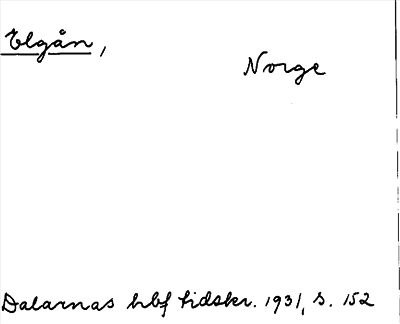 Elgån,
Norge
Dalarnas hbf tidskr. 1931, s. 152